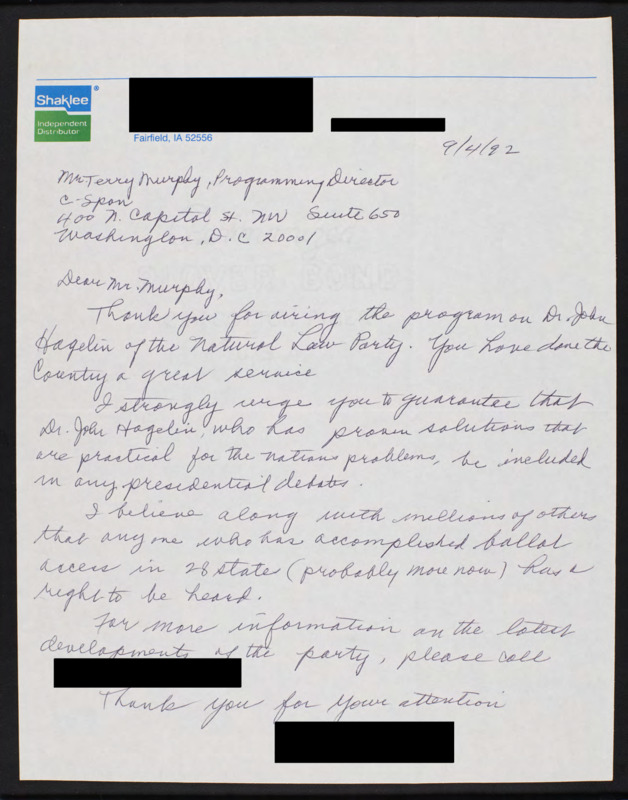 Shaklee®
Independent
Distributor
Fairfield, IA 52556
9/4/92
Mr Terry Murphy, Programming Director
C-Span
400 N. Capitol St. NW Suite 650
Washington, D.C 20001
Dear Mr. Murphy,
Thank you for airing the program on Dr. John
Hagelin of the Natural Law Party. You have done the
Country a great service
I strongly urge you to guarantee that
Dr. John Hagelin, who has proven solutions that
are practical for the nations problems, be included
in any presidential debates.
I believe along with millions of others
that any one who has accomplished ballot
access in 28 state (probably more now) has a
right to be heard.
For more information on the latest
developments of the party, please call
Thank you for your attention